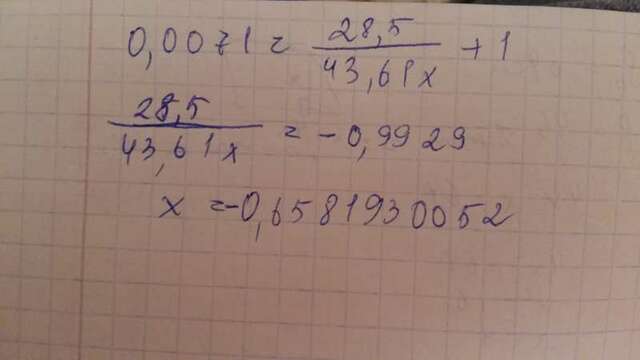 0,0071 = 28,5/43,61x + 1
28,5/43,61x = -0,9929
x = -0,6581930052